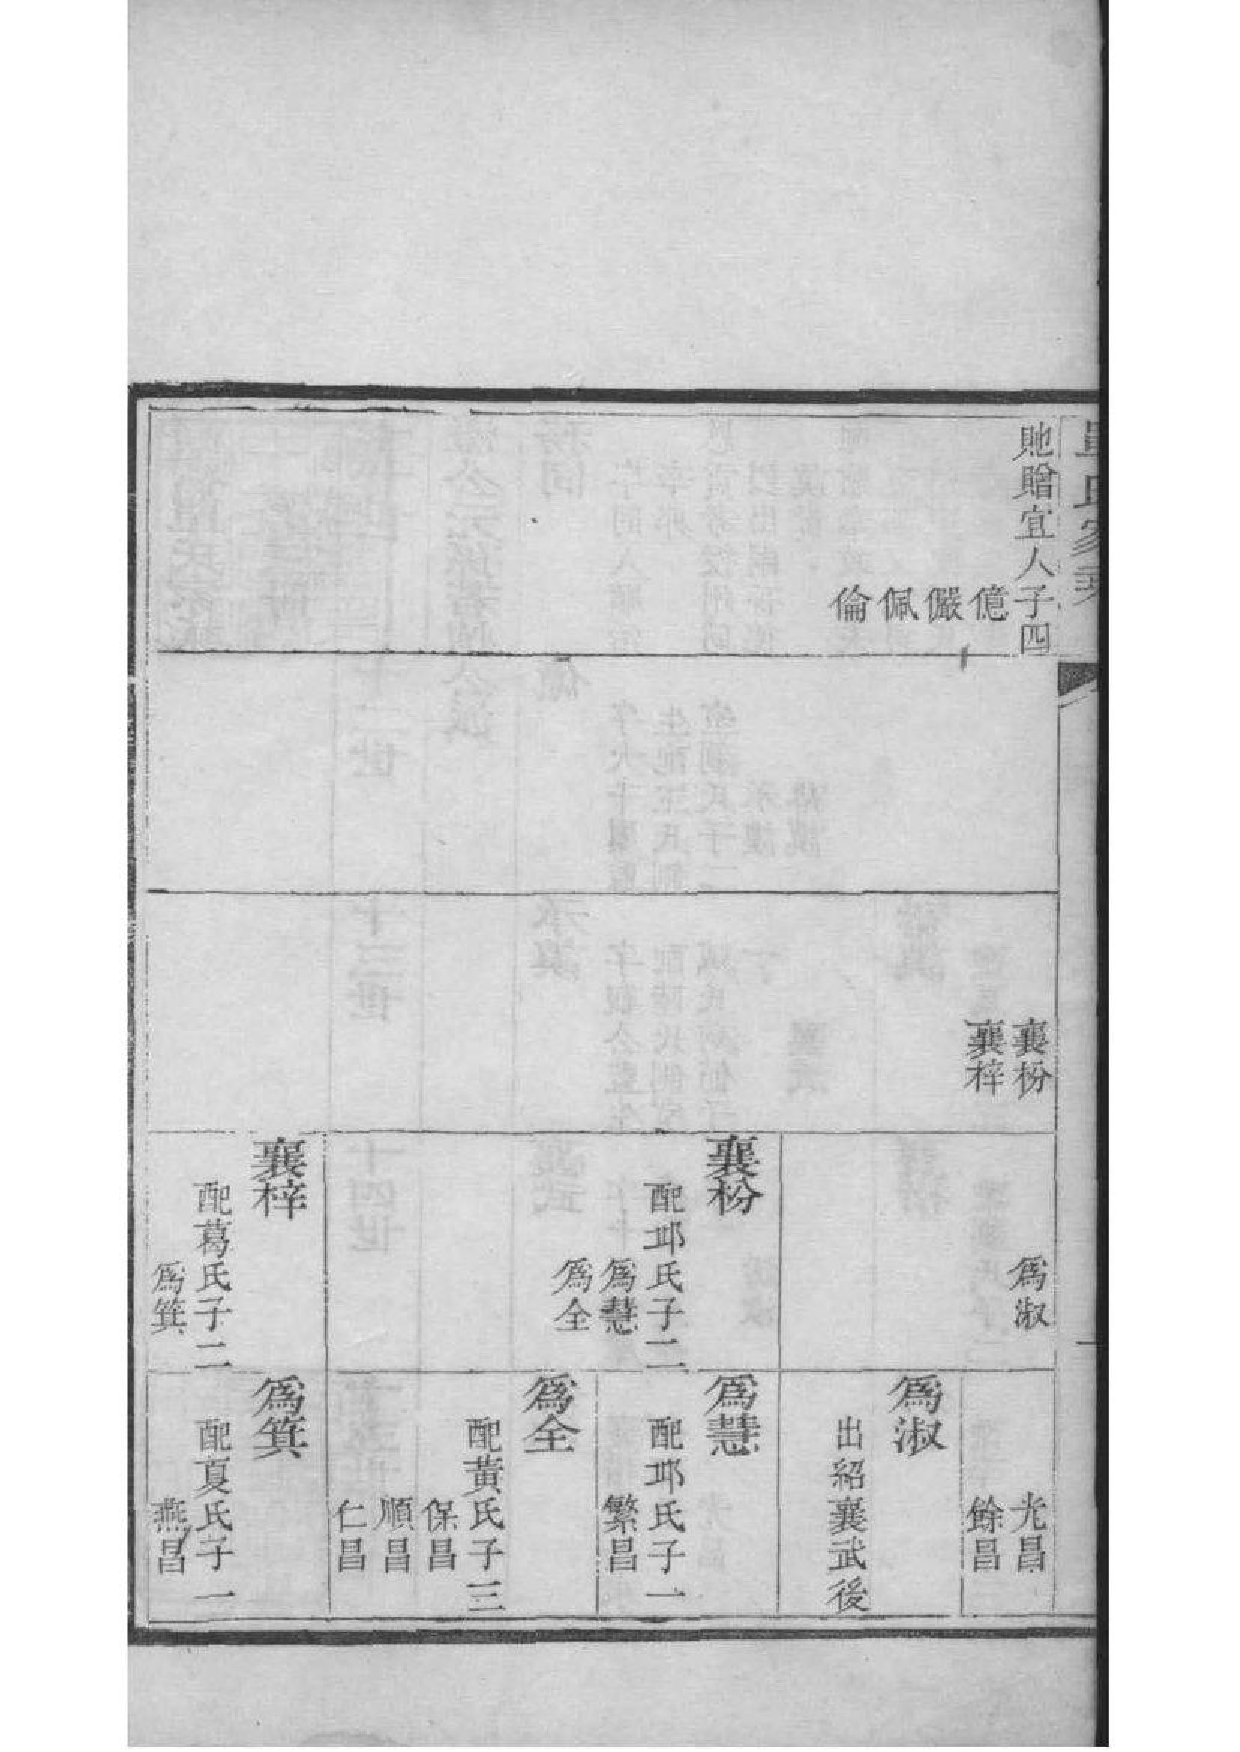 貤贈宜人子四
億
儼
佩
倫
襄枌
襄梓
爲淑
襄枌
配邱氏子二
爲慧
爲全
襄梓
配葛氏子二
爲箕
光昌
餘昌
爲淑
出紹襄武後
爲慧
配邱氏子一
繁昌
爲全
配黃氏子三
保昌
順昌
仁昌
爲箕
配夏氏子一
燕昌